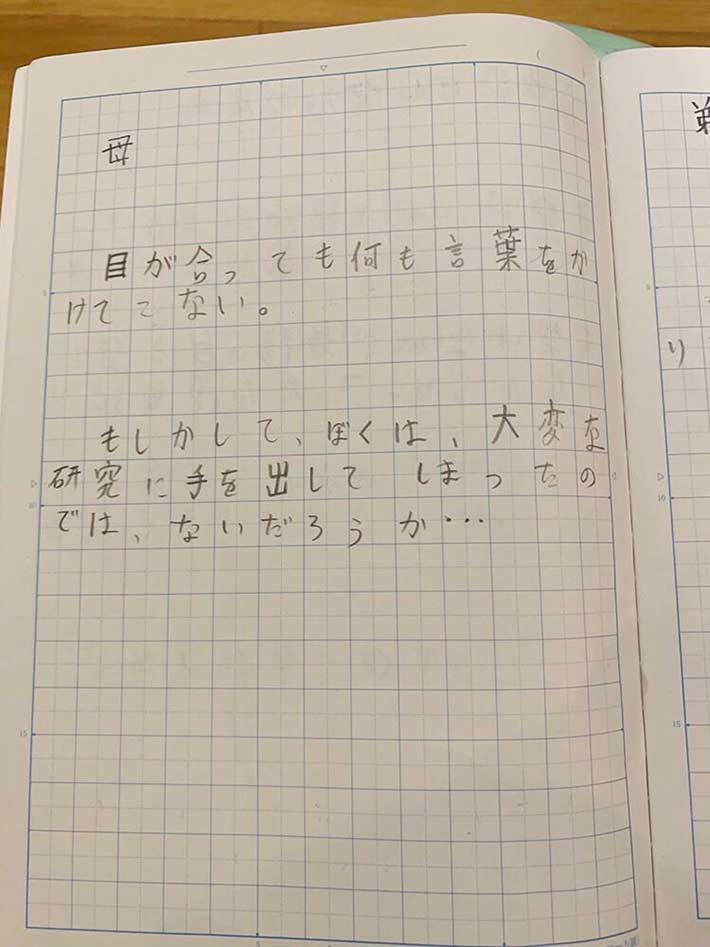 母
目が合っても何も言葉をか
けてこない。
もしかして、ぼくは、大変な
研究に手を出してしまったの
では、ないだろうか…
り
10
15
10
15